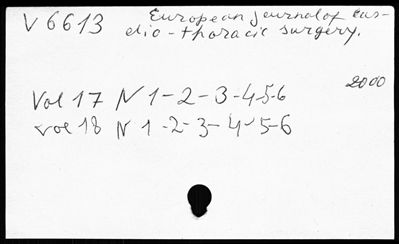 V 6613 European journal of car-
dio-thoracic surgery.
2000
Vol 17 N 1-2-3-4-5-6
vol 18 N 1-2-3-4-5-6